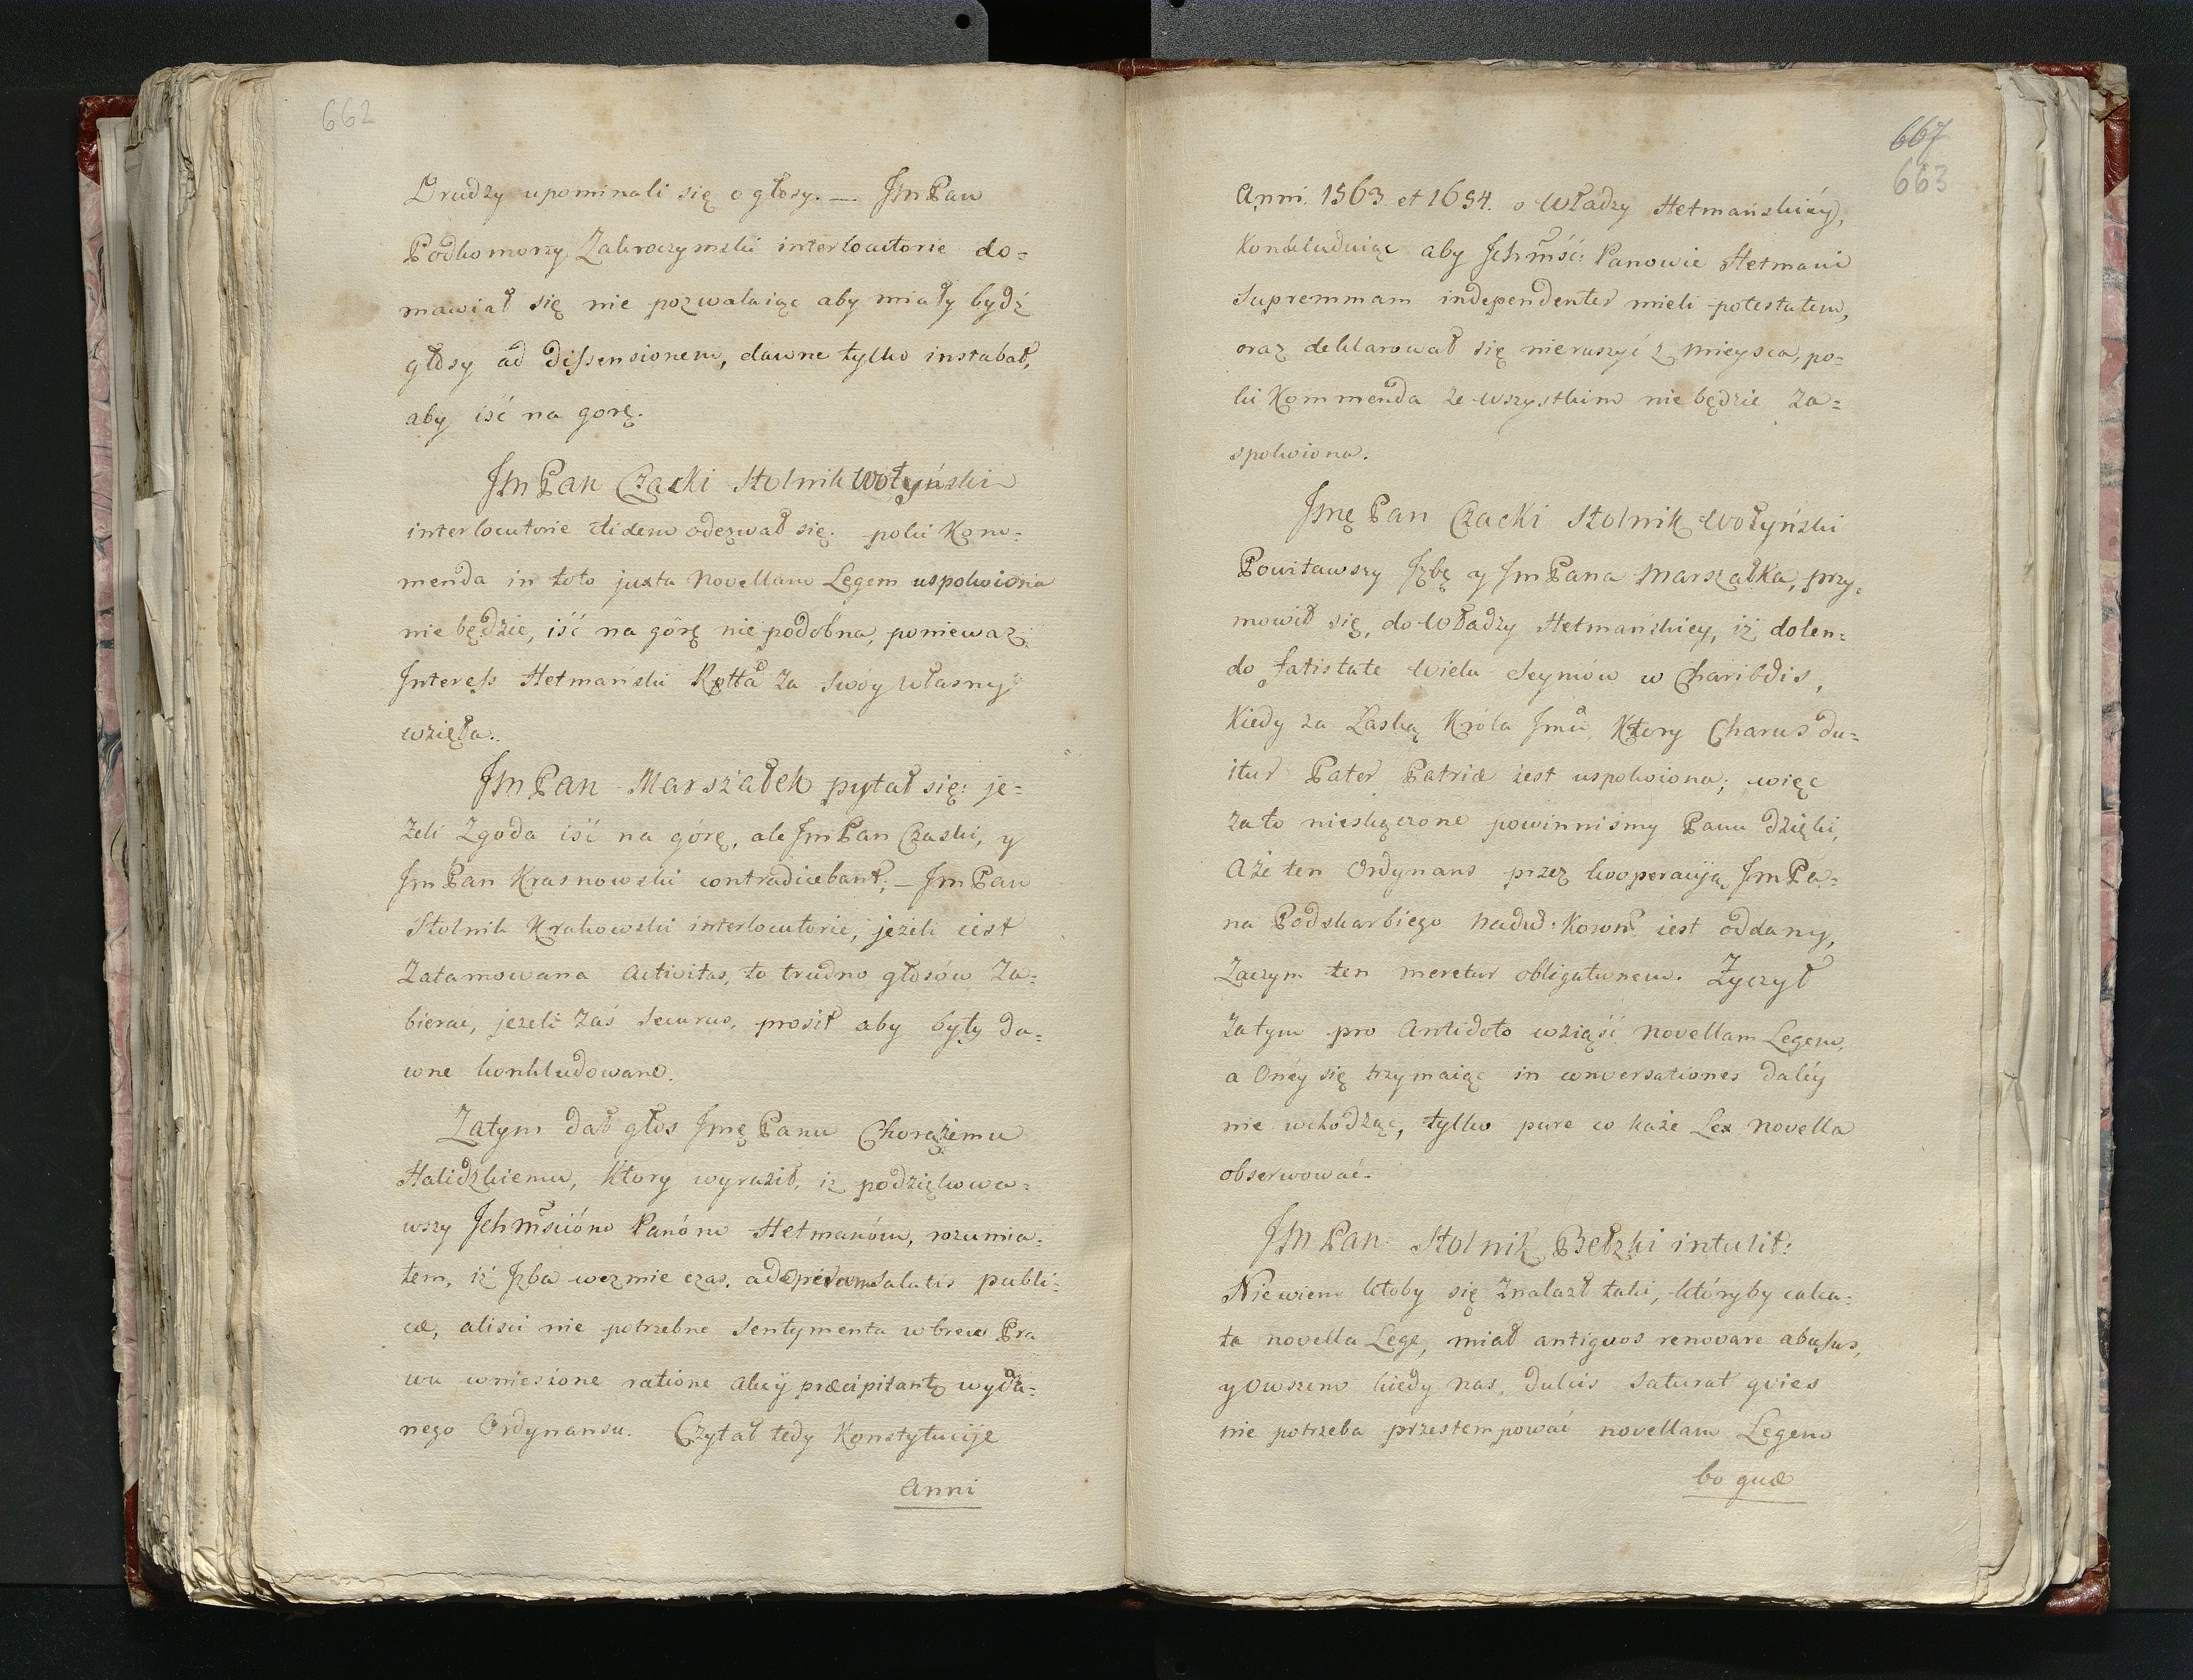 662
Drudzy upominali się o głosy. — JmPan
Podkomorzy Zakroczymski interlocutorie do=
mawiał się nie pozwalaiąc aby miały bydź
głosy ad dissensionem, dawne tylko instabat,
aby iść na gorę.
JmPan Czacki Stolnik Wołyński
interlocutorie itidem odezwał się. poki Kom=
menda in toto juxta Novellam Legem uspokoiona
nie będzie, iść na górę nie podobna, poniewaz
Interess Hetmański Rotta za swóy własny
wzięła.
JmPan Marszałek pytał się: je=
żeli Zgoda iść na górę, ale JmPan Czacki, y
JmPan Krasnowski contradicebant; — JmPan
Stolnik Krakowski interlocutorie, jeżeli iest
Zatamowana Activitas, to trudno głosów Za=
bierać, jeżeli zaś securus, prosił aby były da=
wne konkludowane.
Zatym dał głos Jmę Panu Chorążemu
Halidzkiemu, Ktory wyraził, iz podziękowa=
wszy Jchmścióm Panóm Hetmanóm, rozumia=
łem, iż Jzba wezmie czas, ad operam Salutis publi=
cæ, alisci nie potrzebne Sentymenta wbrew Pra
wu wniesione ratione alicij præcipitantz wyda=
nego Ordynansu. Czytał tedy Konstytucije
Anni
667
663
Anni. 1563. et 1654. o Władzy Hetmańskiéy,
Konkluduiąc aby Jchmść: Panowie Hetmani
Supremmam independenter mieli potestatem,
oraz deklarował się nieruszyć z mieysca, po=
ki Kommenda ze wszystkim nie będzie Za=
spokoiona.
Jmę Pan Czacki Stolnik Wołyński
Powitawszy Jzbę y JmPana Marszałka, przy=
mowił się, do Władzy Hetmanskiey, iż dolen=
do fatis tate wielu Seymów w Charibdis,
Kiedy za Łaską Króla Jmci, Ktory Charus du=
itur Pater Patriæ iest uspokoiona; więc
za to nieskączone powinniśmy Panu dzięki,
Aże ten Ordynans przez kooperaciją JmPa=
na Podskarbiego Nadw: Koron: iest oddany,
Zaczym ten meretur obligationem. Zyczył
Zatym pro Antidoto wziąść novellam Legem,
a Onéy się trzymaiąc in conversationes daléy
nie wchodząc, tylko pure co każe Lex novella
obserwować.
JmPan Stolnik Bełzki intulit:
Niewiem ktoby się znalazł taki, któryby calca=
ta novella Lege, miał antiquos renovare abusus,
y owszem kiedy nas, dulcis saturat qvies
nie potrzeba przestempować novellam Legem
bo quæ